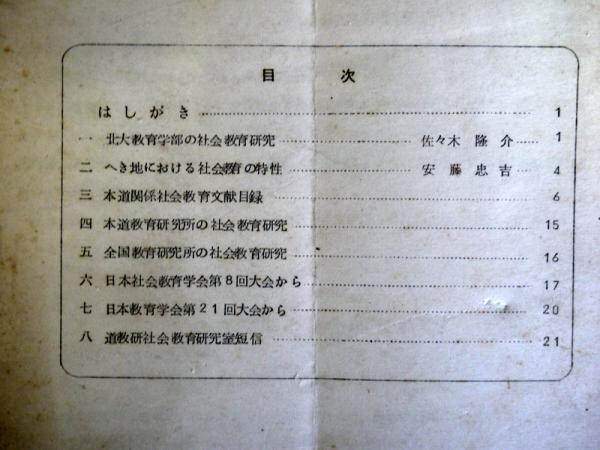 目次
はしがき 1
一 北大教育学部の社会教育研究 佐々木隆介 1
二 へき地における社会教育の特性 安藤忠吉 4
三 本道関係社会教育文献目録 6
四 本道教育研究所の社会教育研究 15
五 全国教育研究所の社会教育研究 16
六 日本社会教育学会第8回大会から 17
七 日本教育学会第21回大会から 20
八 道教研社会教育研究室短信 21